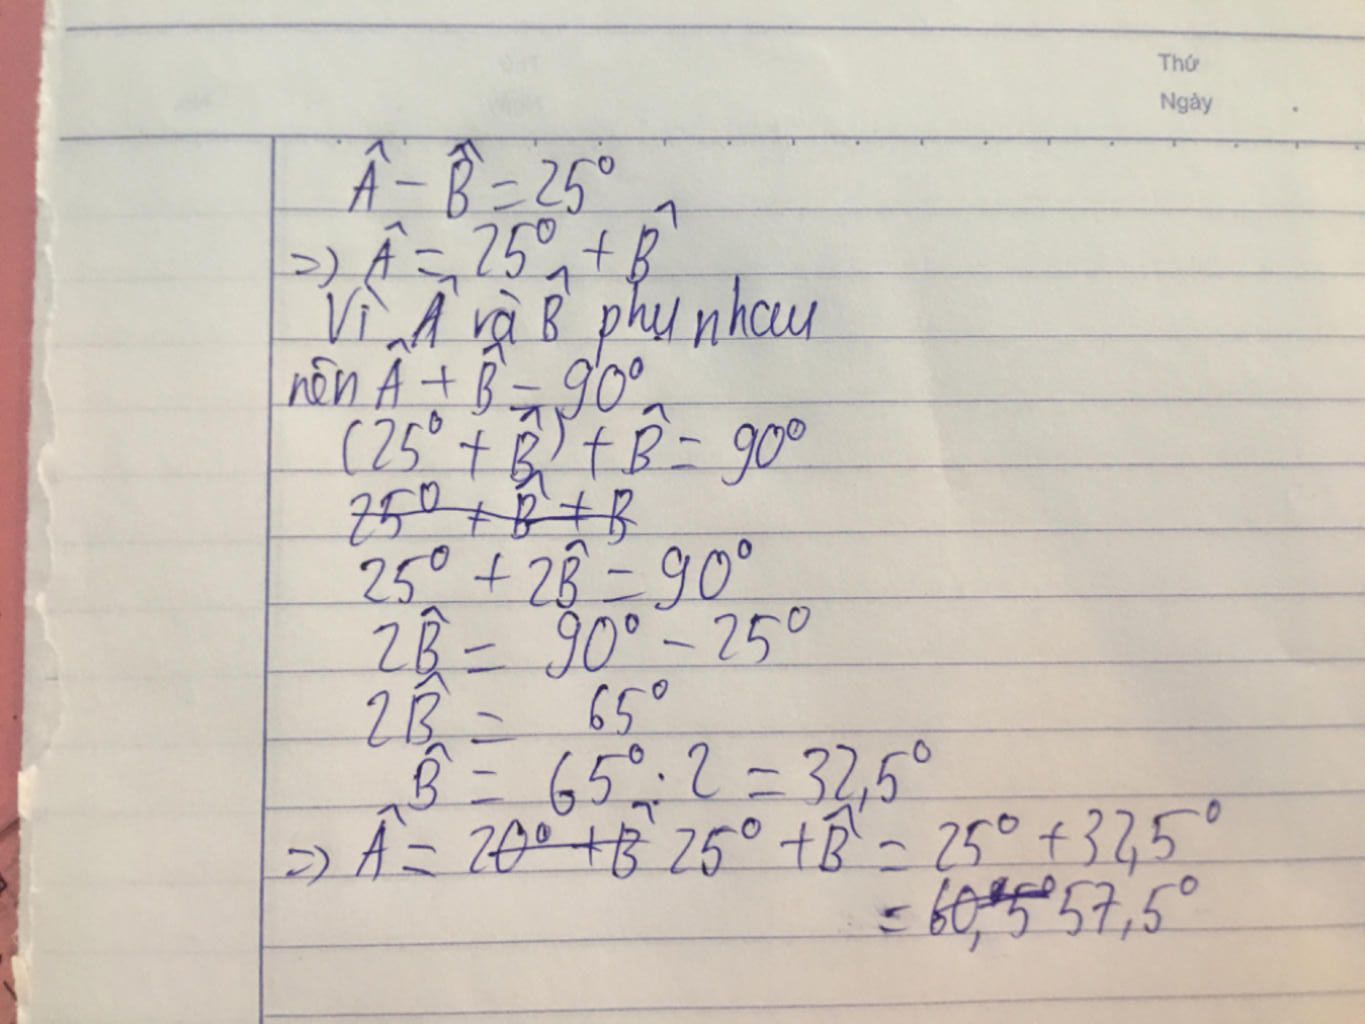 Thứ
Ngày
Â - B̂ = 25°
=> Â = 25° + B̂
Vì Â và B̂ phụ nhau
nên Â + B̂ = 90°
(25° + B̂) + B̂ = 90°
25° + B̂ + B
25° + 2B̂ = 90°
2B̂ = 90° - 25°
2B̂ = 65°
B̂ = 65° : 2 = 32,5°
=> Â = 20° + B̂ 25° + B̂ = 25° + 32,5°
= 60,5° 57,5°